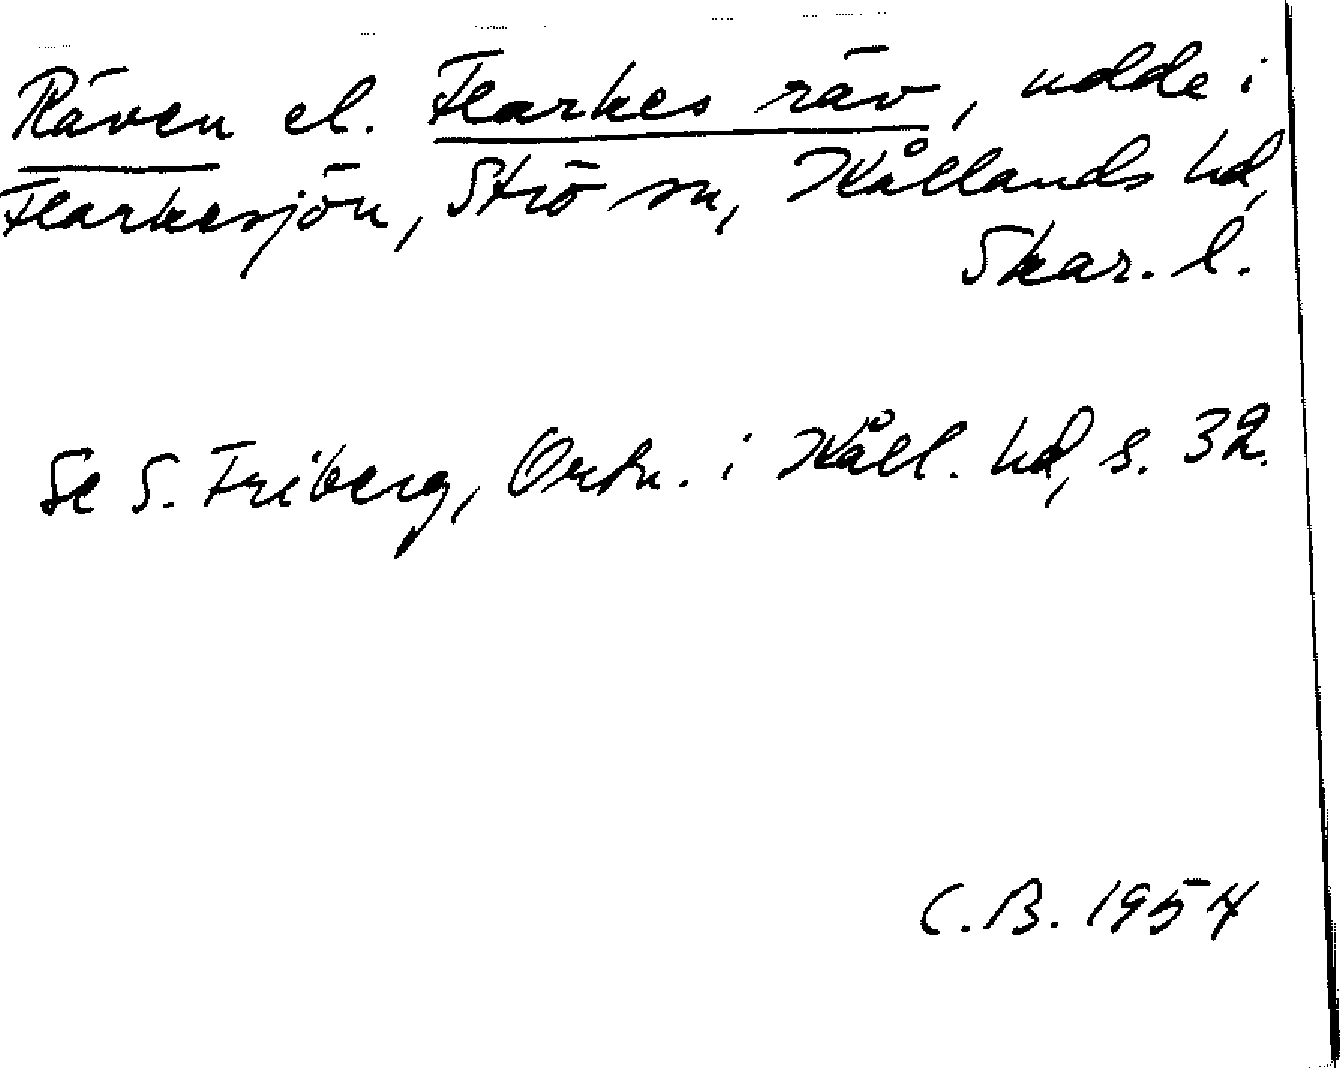 Räven el. Flarkes räv, udde i
Flarkesjön, Strö sn, Kållands hd,
Skar. l.
Se S. Friberg, Ortn. i Kåll. hd, s. 32.
C.B. 1954